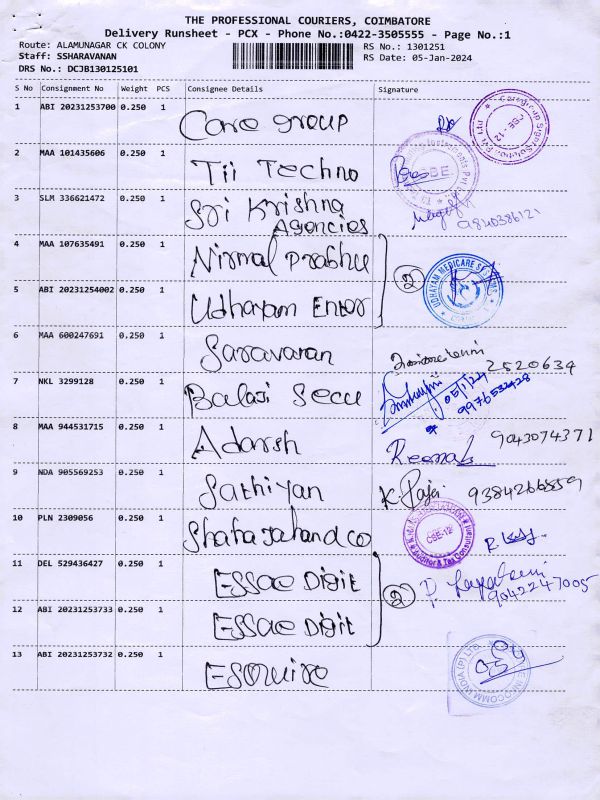 THE PROFESSIONAL COURIERS, COIMBATORE
Delivery Runsheet - PCX - Phone No.:0422-3505555 - Page No.:1
Route: ALAMUNAGAR CK COLONY RS No.: 1301251
Staff: SSHARAVANAN RS Date: 05-Jan-2024
DRS No.: DCJB130125101
S No Consignment No Weight PCS Consignee Details Signature
1 ABI 20231253700 0.250 1 Care group
2 MAA 101435606 0.250 1 Tii Techno
3 SLM 336621472 0.250 1 Sri Krishna
Agencies 9840386121
4 MAA 107635491 0.250 1 Nirmal Prabhu
2 UDHAYAM MEDICARE SYSTEMS
5 ABI 20231254002 0.250 1 Udhayam Enter
6 MAA 600247691 0.250 1 Saravanan 2520634
7 NKL 3299128 0.250 1 Balaji Secu 05/1/24
9976532428
8 MAA 944531715 0.250 1 Adarsh 9043074371
9 NDA 905569253 0.250 1 Sathiyan K. Raja. 9384266859
10 PLN 2309056 1 Shahajahand co CBE-12 Auditor & Tax Consultant
11 DEL 529436427 0.250 1 Essae Digit
2 9042247005
12 ABI 20231253733 0.250 1 Essae Digit
13 ABI 20231253732 0.250 1 Esquire